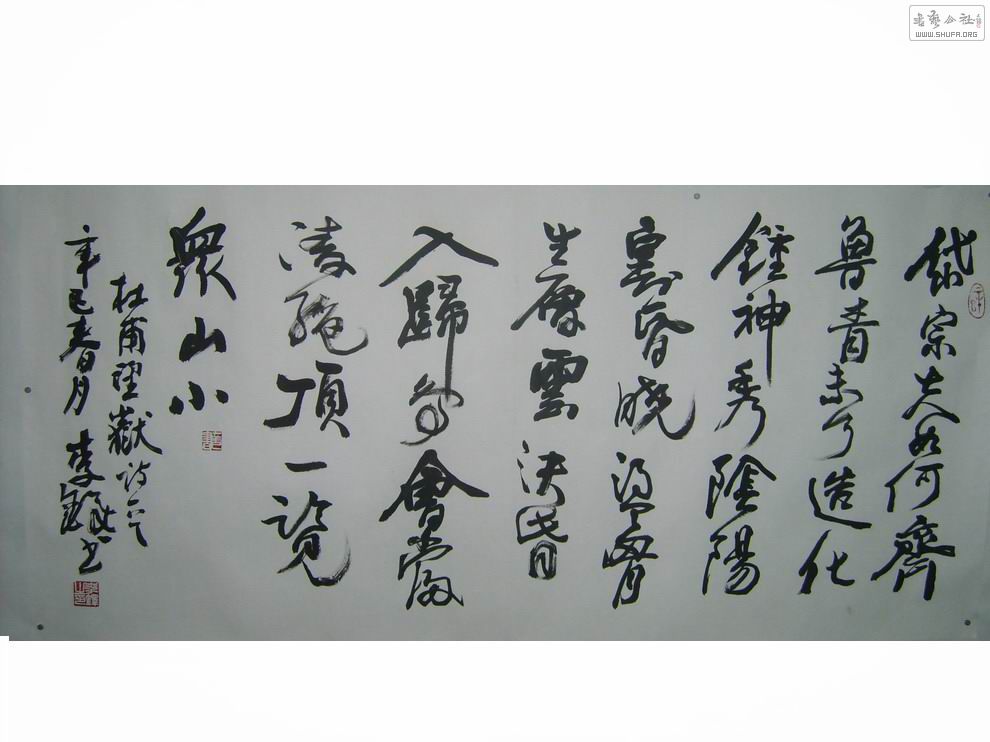 岱宗夫如何齊
魯青未了造化
鍾神秀陰陽
割昏曉盪胷
生層雲決眥
入歸鳥會當
凌絕頂一覽
眾山小
杜甫望嶽詩
辛巳春月 李 書
書藝公社
WWW.SHUFA.ORG